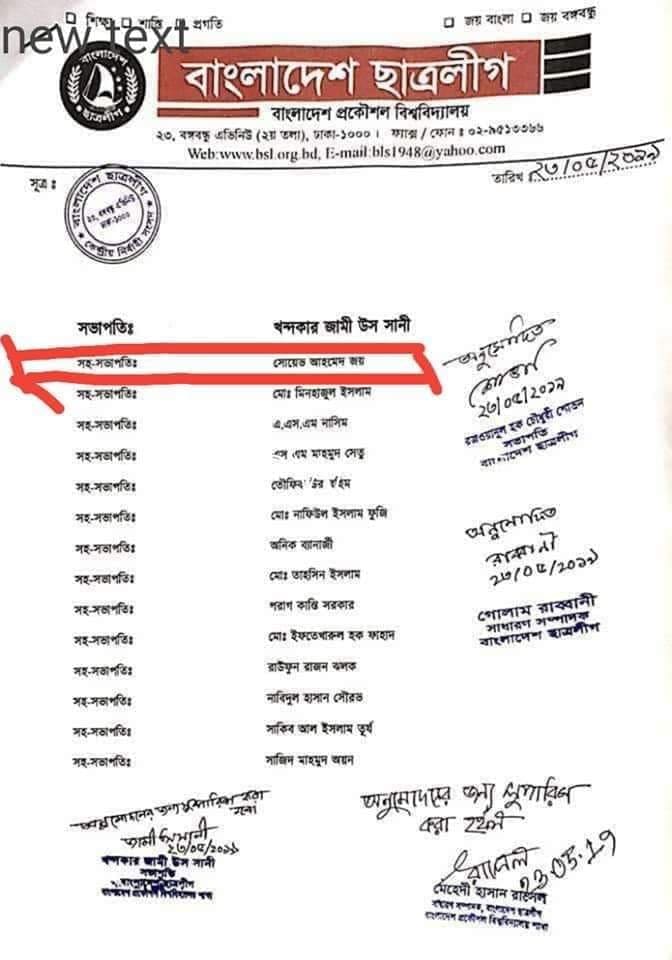 শিক্ষা শান্তি প্রগতি
জয় বাংলা জয় বঙ্গবন্ধু
new text
বাংলাদেশ ছাত্রলীগ
বাংলাদেশ ছাত্রলীগ
বাংলাদেশ প্রকৌশল বিশ্ববিদ্যালয়
২৩, বঙ্গবন্ধু এভিনিউ (২য় তলা), ঢাকা-১০০০ । ফ্যাক্স / ফোন ঃ ০২-৯৫১৩৩৬৬
Web:www.bsl.org.bd, E-mail:bls1948@yahoo.com
সূত্র ঃ
তারিখ ঃ ২৩/০৫/২০১৯
বাংলাদেশ ছাত্রলীগ
২৩, বঙ্গবন্ধু এভিনিউ
ঢাকা-১০০০
কেন্দ্রীয় নির্বাহী সংসদ
সভাপতিঃ খন্দকার জামী উস সানী
সহ-সভাপতিঃ সোয়েভ আহমেদ জয়
সহ-সভাপতিঃ মোঃ মিনহাজুল ইসলাম
সহ-সভাপতিঃ এ.এস.এম নাসিম
সহ-সভাপতিঃ এস এম মাহমুদ সেতু
সহ-সভাপতিঃ
সহ-সভাপতিঃ মোঃ নাফিউল ইসলাম ফুজি
সহ-সভাপতিঃ অনিক ব্যানার্জী
সহ-সভাপতিঃ মোঃ তাহসিন ইসলাম
সহ-সভাপতিঃ পরাগ কান্তি সরকার
সহ-সভাপতিঃ মোঃ ইফতেখারুল হক ফাহাদ
সহ-সভাপতিঃ রাউফুন রাজন ঝলক
সহ-সভাপতিঃ নাবিদুল হাসান সৌরভ
সহ-সভাপতিঃ সাকিব আল ইসলাম তূর্য
সহ-সভাপতিঃ সাজিদ মাহমুদ অয়ন
অনুমোদিত
শোভন
২৩/০৫/২০১৯
রেজওয়ানুল হক চৌধুরী শোভন
সভাপতি
বাংলাদেশ ছাত্রলীগ
অনুমোদিত
রাব্বানী
২৩/০৫/২০১৯
গোলাম রাব্বানী
সাধারণ সম্পাদক
বাংলাদেশ ছাত্রলীগ
অনুমোদনের জন্য সুপারিশ করা
হলো
জামী উস সানী
২৩/০৫/২০১৯
খন্দকার জামী উস সানী
সভাপতি
বাংলাদেশ ছাত্রলীগ
বাংলাদেশ প্রকৌশল বিশ্ববিদ্যালয় শাখা
অনুমোদনের জন্য সুপারিশ
করা হইল
রাসেল
23.05.19
মেহেদী হাসান রাসেল
সাধারণ সম্পাদক, বাংলাদেশ ছাত্রলীগ
বাংলাদেশ প্রকৌশল বিশ্ববিদ্যালয় শাখা